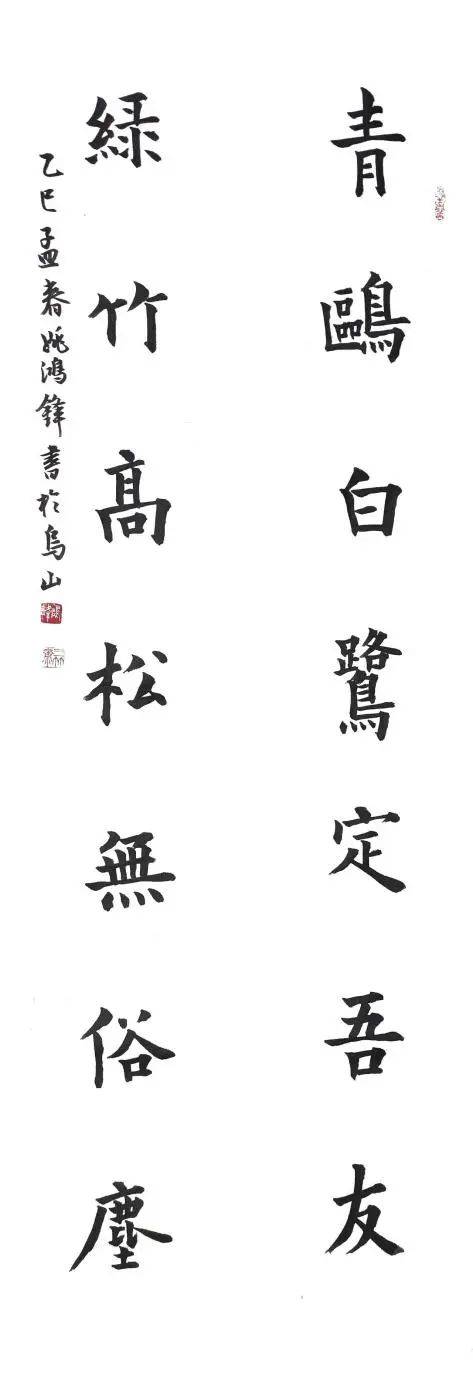 青鷗白鷺定吾友
緑竹高松無俗塵
乙巳孟春姚鴻鋒書於烏山